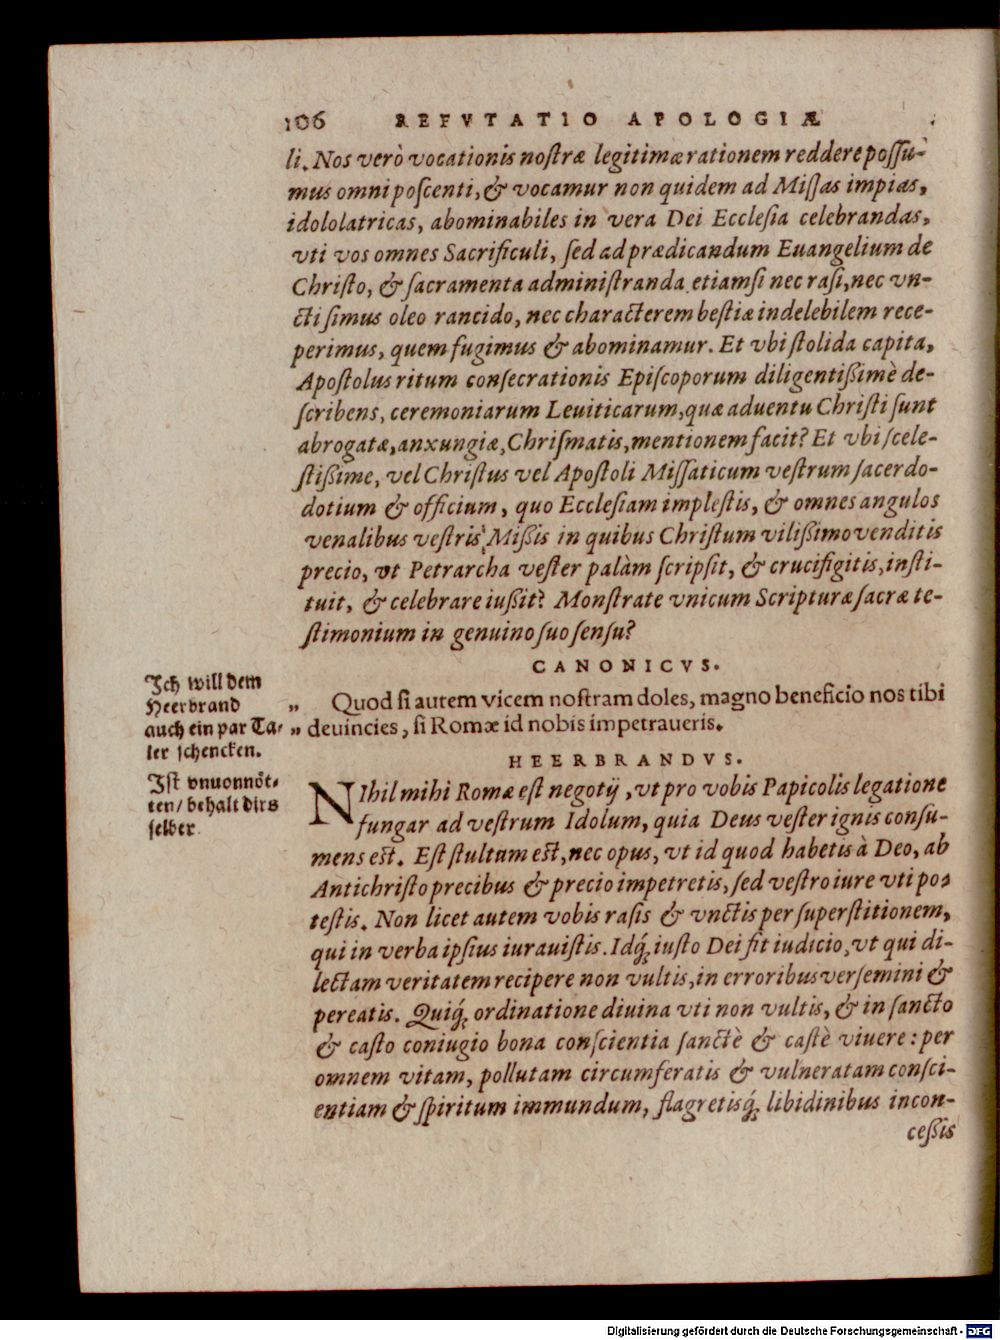 106 REFVTATIO APOLOGIÆ
li. Nos verò vocationis nostræ legitimæ rationem reddere possu-
mus omni poscenti, & vocamur non quidem ad Missas impias,
idololatricas, abominabiles in vera Dei Ecclesia celebrandas,
vti vos omnes Sacrificuli, sed ad prædicandum Euangelium de
Christo, & sacramenta administranda etiamsi nec rasi, nec vn-
cti simus oleo rancido, nec characterem bestiæ indelebilem rece-
perimus, quem fugimus & abominamur. Et vbi stolida capita,
Apostolus ritum consecrationis Episcoporum diligentißimè de-
scribens, ceremoniarum Leuiticarum, quæ aduentu Christi sunt
abrogatæ, anxungiæ, Chrismatis, mentionem facit? Et vbi scele-
stißime, vel Christus vel Apostoli Missaticum vestrum sacerdo-
dotium & officium, quo Ecclesiam implestis, & omnes angulos
venalibus vestris Mißis in quibus Christum vilißimo venditis
precio, vt Petrarcha vester palàm scripsit, & crucifigitis, insti-
tuit, & celebrare iußit? Monstrate vnicum Scripturæ sacræ te-
stimonium in genuino suo sensu?
CANONICVS.
Quod si autem vicem nostram doles, magno beneficio nos tibi
„ deuincies, si Romæ id nobis impetraueris.
Ich will dem
Heerbrand „
auch ein par Ta-
ler schencken.
Ist vnuonnöt-
ten/ behalt dirs
selber.
HEERBRANDVS.
NIhil mihi Romæ est negotij, vt pro vobis Papicolis legatione
fungar ad vestrum Idolum, quia Deus vester ignis consu-
mens est. Est stultum est, nec opus, vt id quod habetis à Deo, ab
Antichristo precibus & precio impetretis, sed vestro iure vti po-
testis. Non licet autem vobis rasis & vnctis per superstitionem,
qui in verba ipsius iurauistis. Idq́; iusto Dei fit iudicio, vt qui di-
lectam veritatem recipere non vultis, in erroribus versemini &
pereatis. Quiq́; ordinatione diuina vti non vultis, & in sancto
& casto coniugio bona conscientia sanctè & castè viuere: per
omnem vitam, pollutam circumferatis & vulneratam consci-
entiam & spiritum immundum, flagretisq́; libidinibus incon-
ceßis
Digitalisierung gefördert durch die Deutsche Forschungsgemeinschaft - DFG